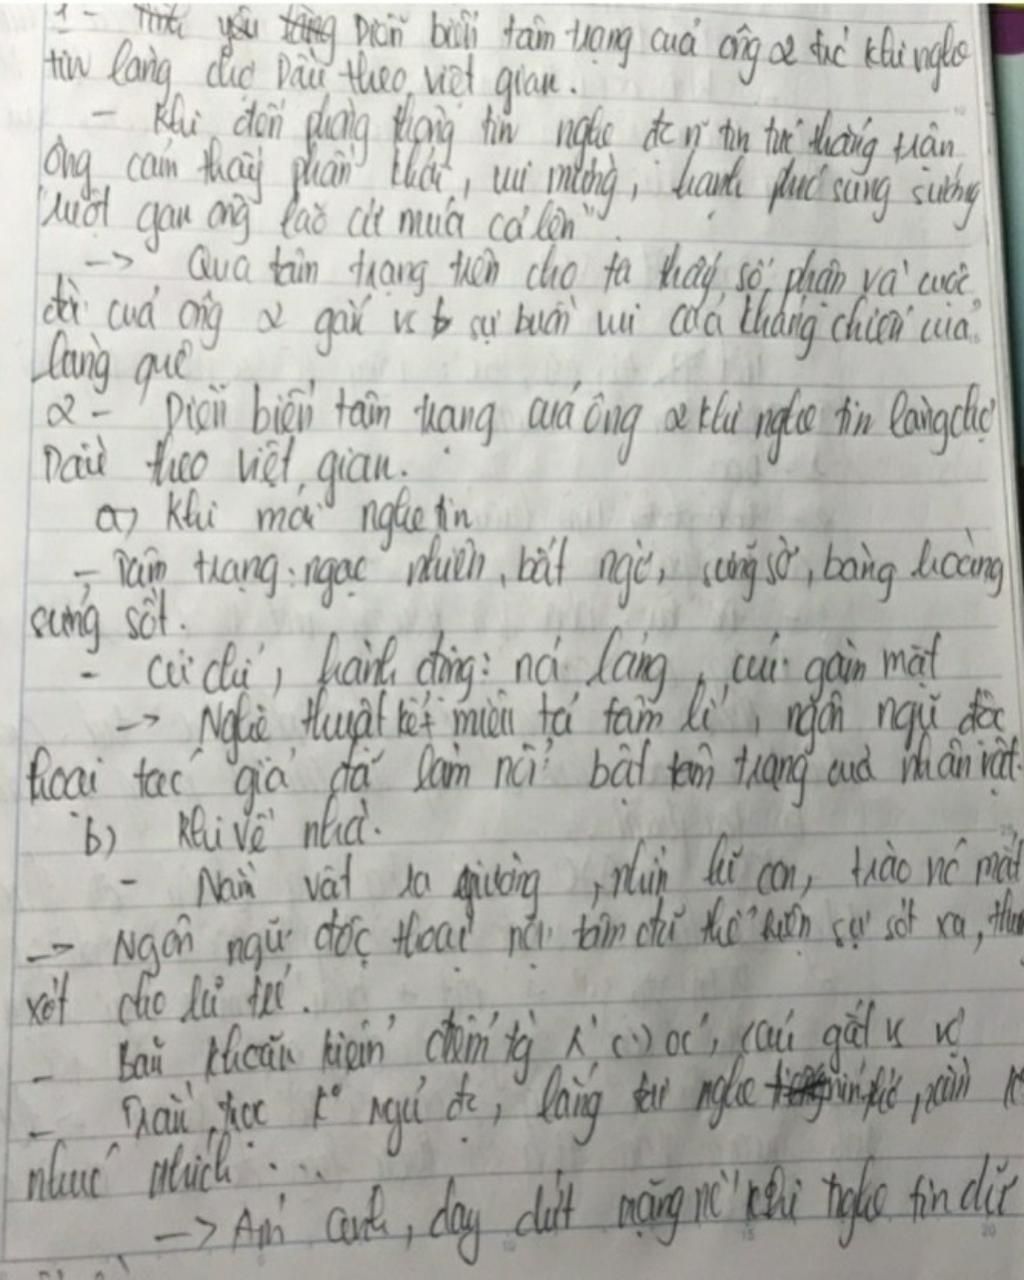 1 - Tình yêu làng Diễn biến tâm trạng của ông 2 trước khi nghe
tin làng chợ Dầu theo việt gian.
- Khi đến phòng thông tin nghe đc n~ tin tức kháng
ông cảm thấy phấn khởi, vui mừng, hạnh phúc sung sướng
"ruột gan ông lão cứ múa cả lên".
-> Qua tâm trạng trên cho ta thấy số phận và cuộc
đời của ông 2 gắn vs sự buồn vui của kháng chiến của
làng quê
2 - Diễn biến tâm trạng của ông 2 khi nghe tin làng chợ
Dầu theo việt gian.
a) Khi mới nghe tin
- Tâm trạng: ngạc nhiên, bất ngờ, sững sờ, bàng hoàng
sửng sốt.
- Cử chỉ, hành động: nói lảng, cúi gằm mặt
-> Nghệ thuật kết miêu tả tâm lí, ngôn ngữ độc
thoại tác giả đã làm nổi bật tâm trạng của nhân vật.
b) Khi về nhà.
- Nằm vật ra giường, nhìn lũ con, trào nc mắt
-> Ngôn ngữ độc thoại nội tâm thể hiện sự xót xa,
xót cho lũ trẻ.
- Băn khoăn kiểm điểm từng, cáu gắt vs vợ
- Trằn trọc k° ngủ đc, lắng tai nghe
nhúc nhích...
-> Ám ảnh, day dứt nặng nề khi nghe tin dữ